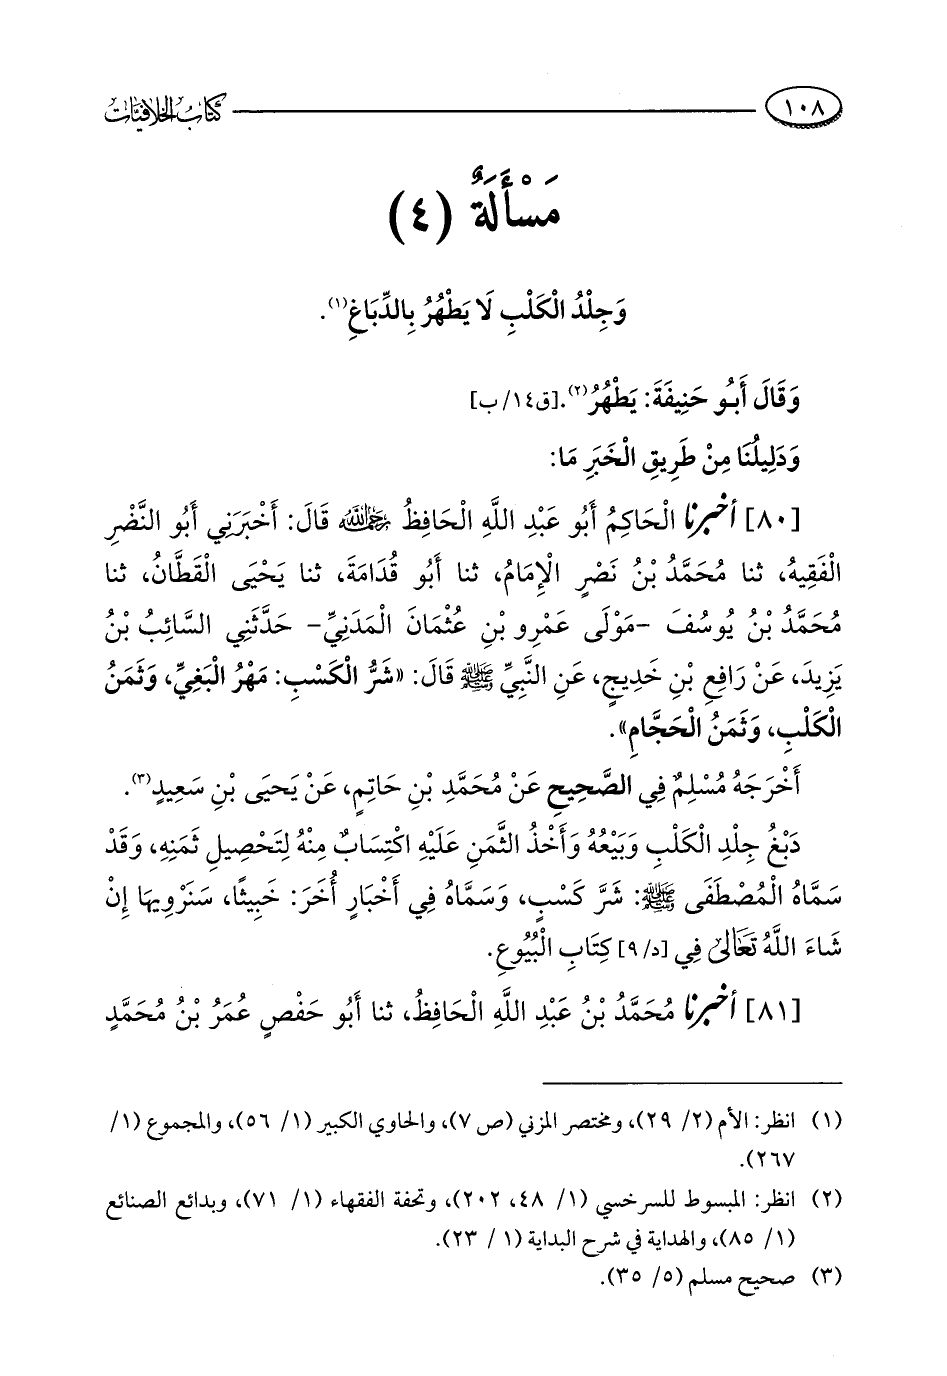 ١٠٨ كتاب الخلافيات
مَسْأَلَةٌ (٤)
وَجِلْدُ الْكَلْبِ لَا يَطْهُرُ بِالدِّبَاغِ(١).
وَقَالَ أَبُو حَنِيفَةَ: يَطْهُرُ(٢).[ق١٤/ب]
وَدَلِيلُنَا مِنْ طَرِيقِ الْخَبَرِ مَا:
[٨٠] أخبرنا الْحَاكِمُ أَبُو عَبْدِ اللَّهِ الْحَافِظُ رحمه الله قَالَ: أَخْبَرَنِي أَبُو النَّضْرِ
الْفَقِيهُ، ثنا مُحَمَّدُ بْنُ نَصْرٍ الْإِمَامُ، ثنا أَبُو قُدَامَةَ، ثنا يَحْيَى الْقَطَّانُ، ثنا
مُحَمَّدُ بْنُ يُوسُفَ -مَوْلَى عَمْرِو بْنِ عُثْمَانَ الْمَدَنِيِّ- حَدَّثَنِي السَّائِبُ بْنُ
يَزِيدَ، عَنْ رَافِعِ بْنِ خَدِيجٍ، عَنِ النَّبِيِّ ﷺ قَالَ: «شَرُّ الْكَسْبِ: مَهْرُ الْبَغِيِّ، وَثَمَنُ
الْكَلْبِ، وَثَمَنُ الْحَجَّامِ».
أَخْرَجَهُ مُسْلِمٌ فِي الصَّحِيحِ عَنْ مُحَمَّدِ بْنِ حَاتِمٍ، عَنْ يَحْيَى بْنِ سَعِيدٍ(٣).
دَبْغُ جِلْدِ الْكَلْبِ وَبَيْعُهُ وَأَخْذُ الثَّمَنِ عَلَيْهِ اكْتِسَابٌ مِنْهُ لِتَحْصِيلِ ثَمَنِهِ، وَقَدْ
سَمَّاهُ الْمُصْطَفَى ﷺ: شَرَّ كَسْبٍ، وَسَمَّاهُ فِي أَخْبَارٍ أُخَرَ: خَبِيثًا، سَنَرْوِيهَا إِنْ
شَاءَ اللَّهُ تَعَالَى فِي [د/٩] كِتَابِ الْبُيُوعِ.
[٨١] أخبرنا مُحَمَّدُ بْنُ عَبْدِ اللَّهِ الْحَافِظُ، ثنا أَبُو حَفْصٍ عُمَرُ بْنُ مُحَمَّدٍ
(١) انظر: الأم (٢/ ٢٩)، ومختصر المزني (ص٧)، والحاوي الكبير (١/ ٥٦)، والمجموع (١/
٢٦٧).
(٢) انظر: المبسوط للسرخسي (١/ ٤٨، ٢٠٢)، وتحفة الفقهاء (١/ ٧١)، وبدائع الصنائع
(١/ ٨٥)، والهداية في شرح البداية (١ / ٢٣).
(٣) صحيح مسلم (٥/ ٣٥).